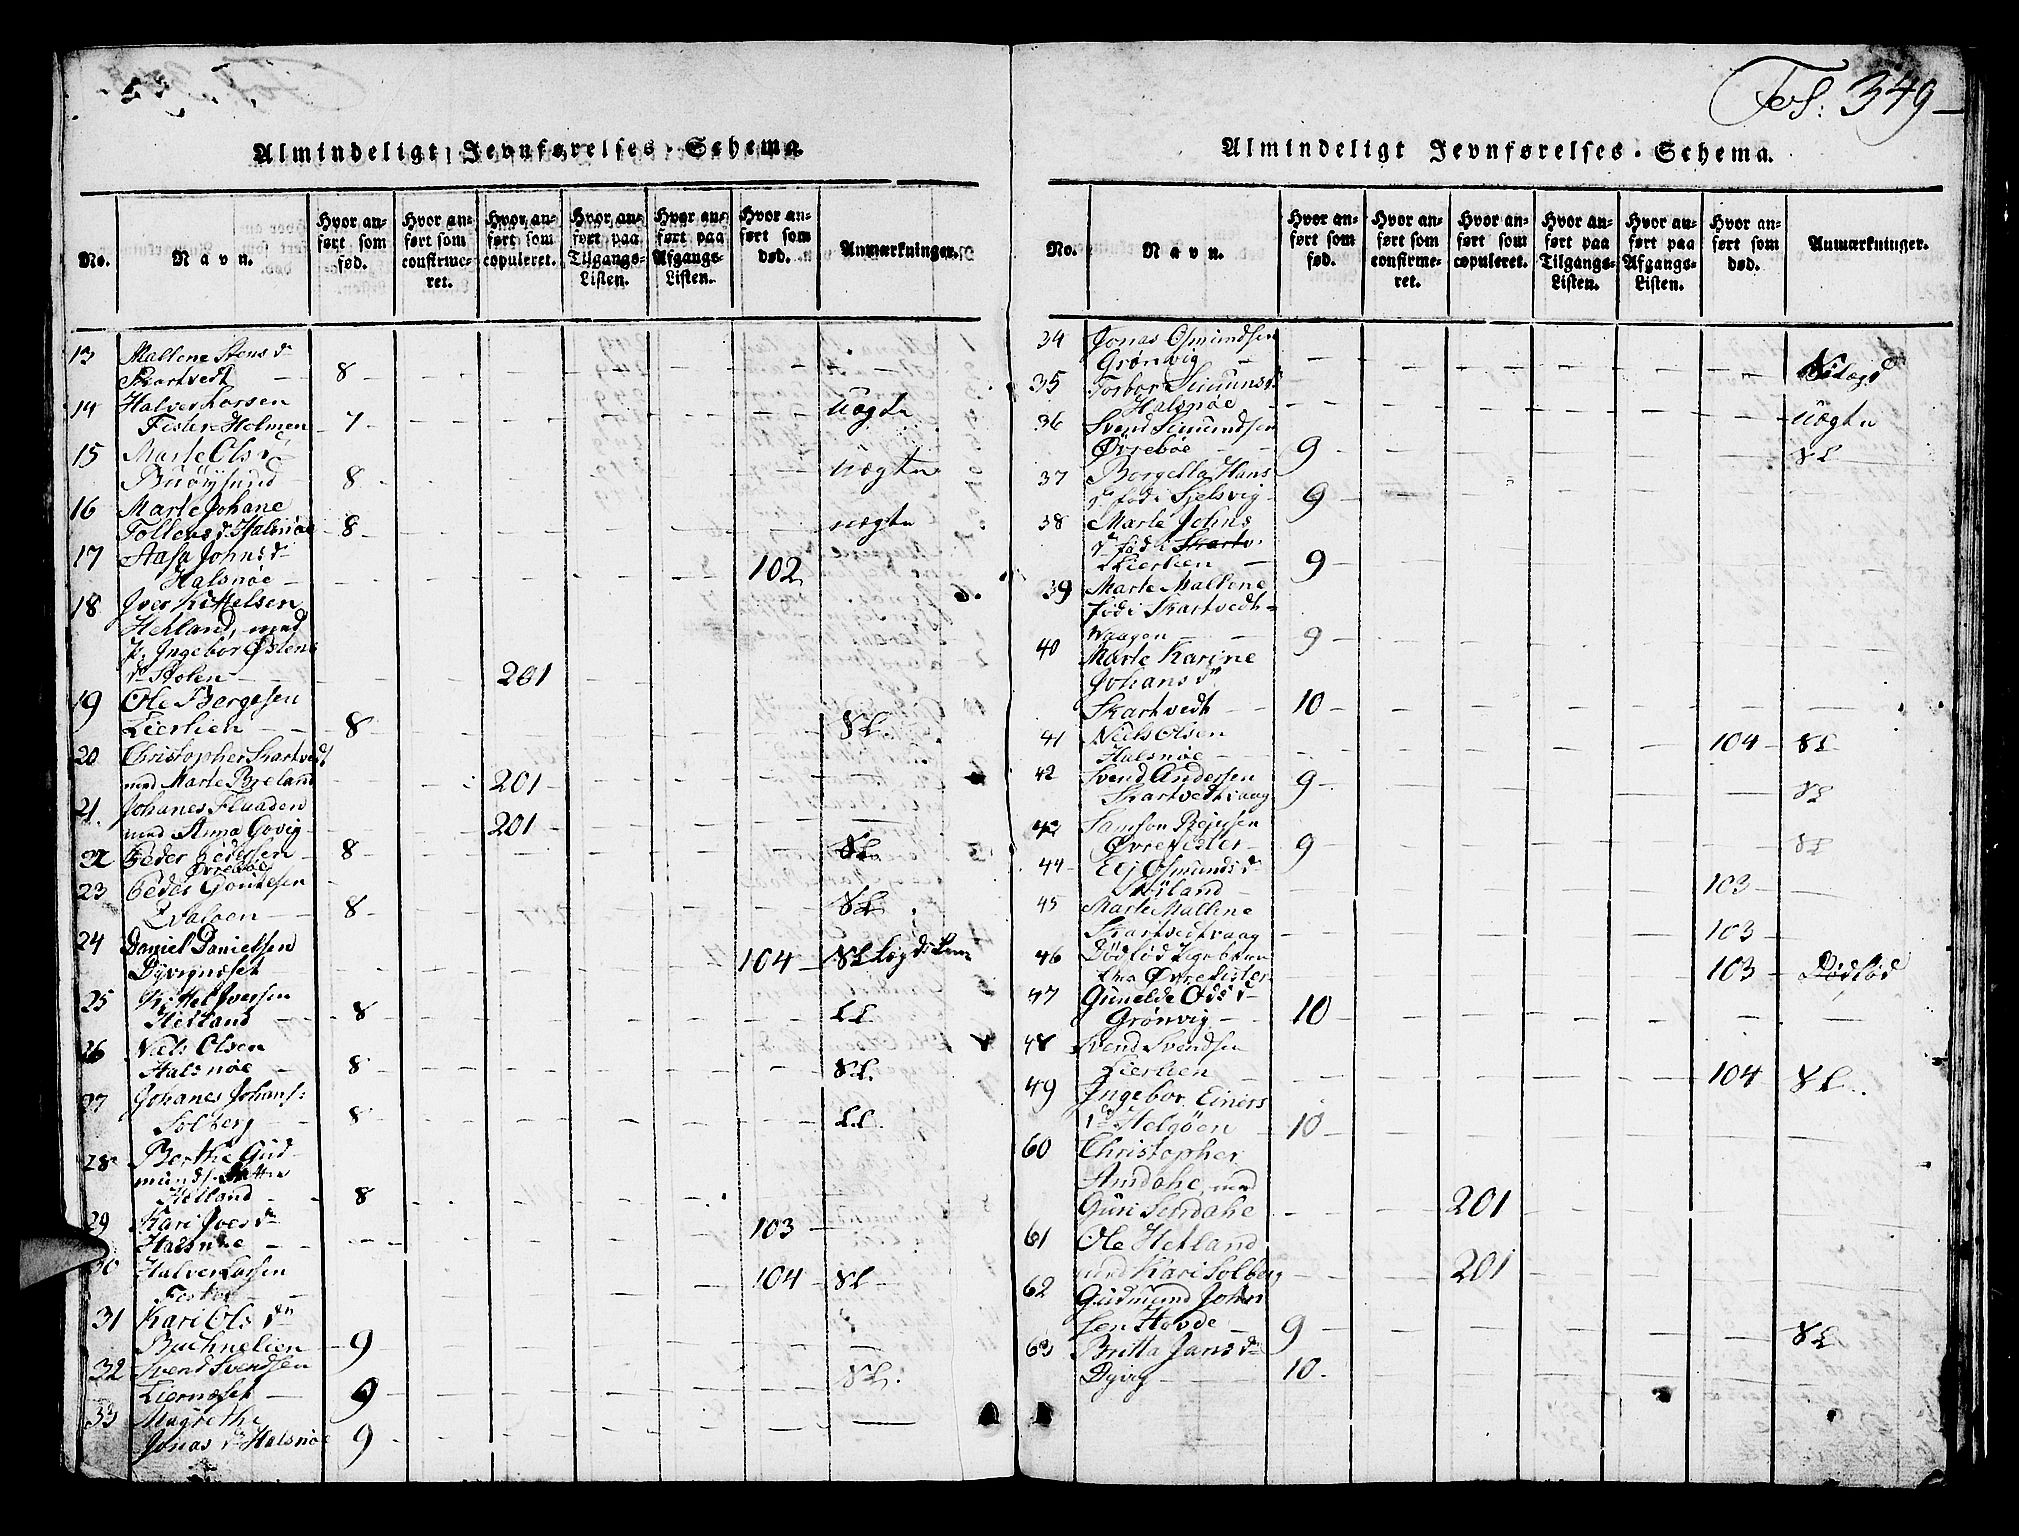 Fol: 349
Almindeligt Jevnførelses-Schema.
No. Navn. Hvor anført som fød. Hvor anført som confirmeret. Hvor anført som copuleret. Hvor anført paa Tilgangs-Listen. Hvor anført paa Afgangs-Listen. Hvor anført som død. Anmærkninger.
13 Mallene Stens dr
Skartvedt 8
14 Halver
Fister Holmen 7 Uægte
15 Marte Ols dr
Buøysund 8 Uægte
16 Marte Johane
Tollevs dr Halsnøe 8 uægte
17 Johns dr
Halsnøe 102
18 Iver Kittelsen
Hetland, med
p. Ingebor Østens
dr Stolen 201
19 Ole Bergesen
Lierlien 8 SL.
20 Christopher Skartvedt
med Marte Breland 201
21 Johanes Fluaden
med Anna Govig 201
22 Peder Pedersen
Øvrebøe 8 SL.
23 Peder
8 SL.
24 Daniel Danielsen
Dyvignæset 104 SL
25 Kittel Iversen
Hetland 8 LL.
26 Niels Olsen
Halsnøe 8 SL.
27 Johanes Johans:
Solberg 8 LL.
28 Berthe Gud-
munds Datter
Hetland 8
29 Kari Ives dr
Halsnøe 103
30 Halver Larsen
104 SL
31 Kari Ols dr
9
32 Svend Svendsen
Liernæset 9 SL.
33 Magrethe
Jonas dr Halsnøe 9
Almindeligt Jevnførelses-Schema.
No. Navn. Hvor anført som fød. Hvor anført som confirmeret. Hvor anført som copuleret. Hvor anført paa Tilgangs-Listen. Hvor anført paa Afgangs-Listen. Hvor anført som død. Anmærkninger.
34 Jonas Osmundsen
Grønwig
35 Torbor Simuns dr
Halsnøe Uægte
36 Svend Simundsen
Øvrebøe 9 SL
37 Borgella Hans
dr fød i Sjelsvig 9
38 Marte Johns
dr fød i Skartv.
Lierlien 9
39 Marte Mallene
fød i Skartvedt-
waagen 9
40 Marte Karine
Johans dr
Skartvedt 10
41 Niels Olsen
Halsnøe 104 SL
42 Svend Andersen
Skartvedtvaag 9 SL
43 Samson
Øvrefister 9 SL
44 Osmunds dr
103
45 Marte Mallene
Skartvedtvaag 103
46 Dødfød
Øvrefister 103 Dødfød
47 Gunelde Ods dr
Grønvig 10
48 Svend Svendsen
Lierlien 104 SL.
49 Ingebor Einers
dr Helgøen 10
60 Christopher
Amdahe, med
Guri Sendahe 201
61 Ole Hetland
med Kari Solberg 201
62 Gudmund John
sen Hovde 9 SL
63 Britta Jans dr
Dyvig 10.